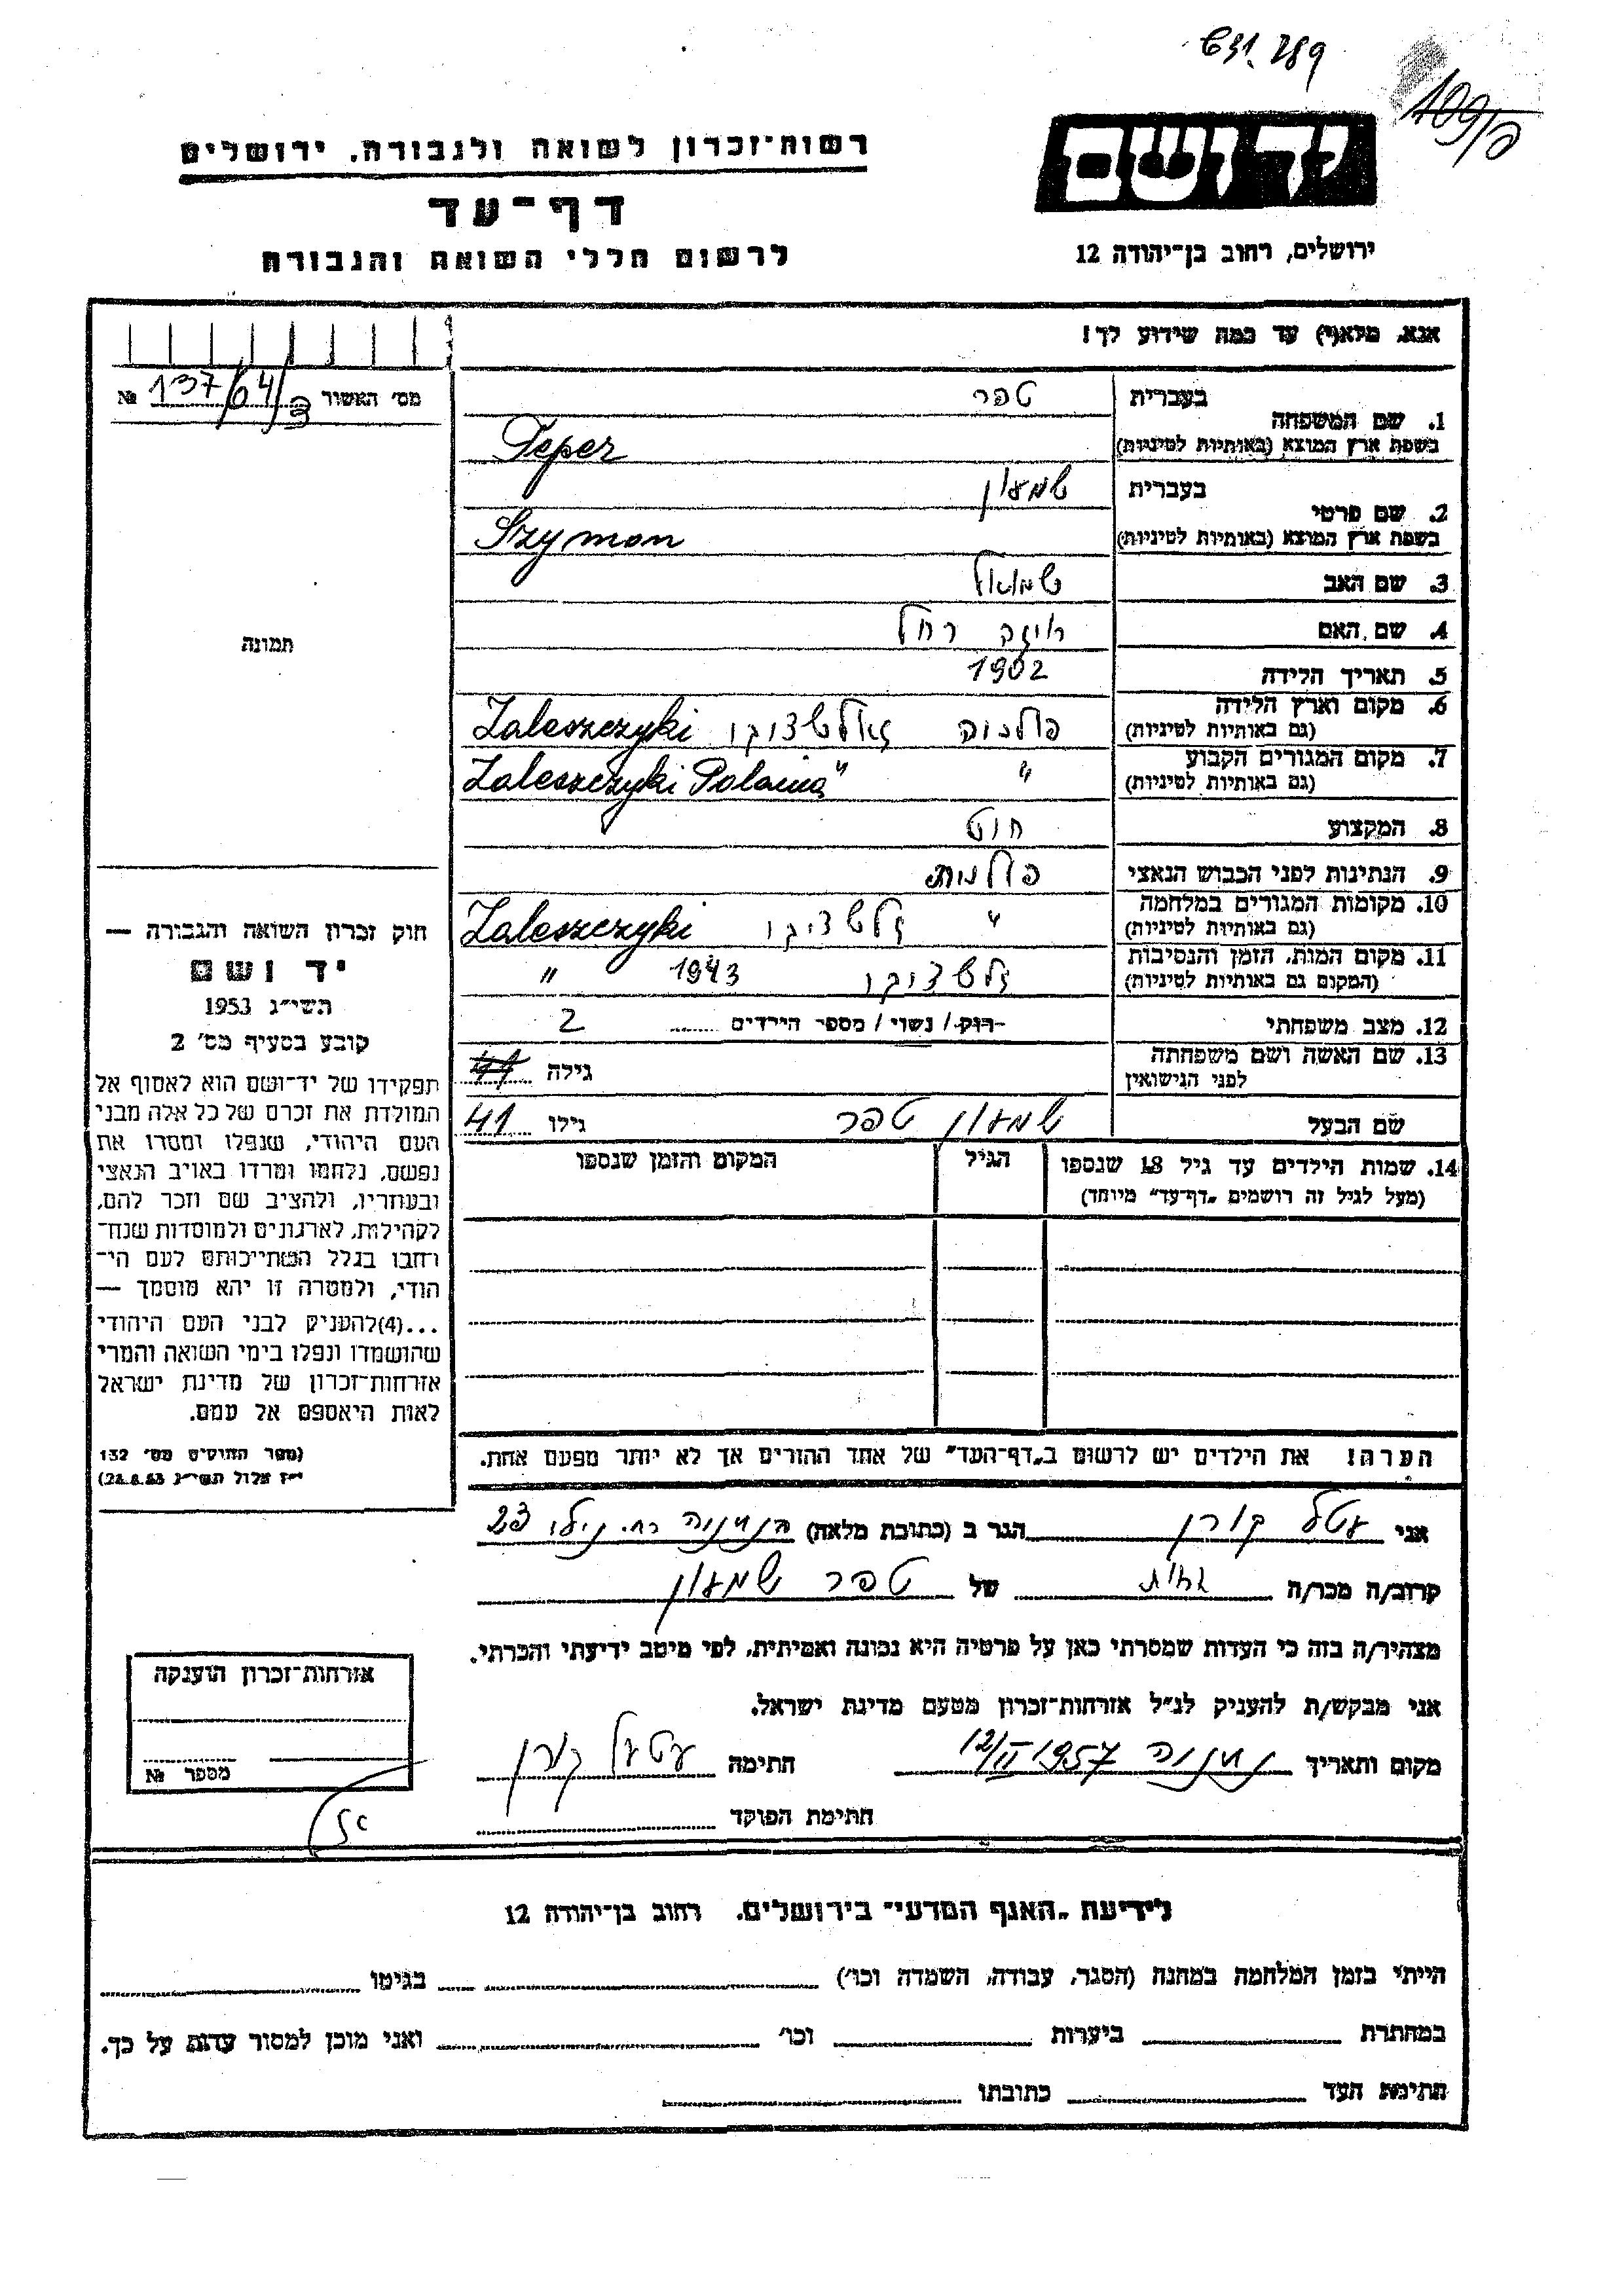 631.289
109/פ
יד ושם
רשות־זכרון לשואה ולגבורה, ירושלים
דף־עד
לרשום חללי השואה והגבורה
ירושלים, רחוב בן־יהודה 12
אנא, מלא(י) עד כמה שידוע לך!
מס' האשור 137/64/ № 
1. שם המשפחה בעברית טפר
בשפת ארץ המוצא (באותיות לטיניות) Teper
2. שם פרטי בעברית שמעון
בשפת ארץ המוצא (באותיות לטיניות) Szymon
3. שם האב שמואל
4. שם האם רייזה רחל
5. תאריך הלידה 1902
6. מקום וארץ הלידה פולניה זאלשציקי Zaleszczyki
(גם באותיות לטיניות)
7. מקום המגורים הקבוע " " Zaleszczyki Polania
(גם באותיות לטיניות)
8. המקצוע חיט
9. הנתינות לפני הכבוש הנאצי פולנית
10. מקומות המגורים במלחמה " זלשציקי Zaleszczyki
(גם באותיות לטיניות)
11. מקום המות, הזמן והנסיבות זלשציקי 1943 "
(המקום גם באותיות לטיניות)
12. מצב משפחתי רוק / נשוי / מספר הילדים 2
13. שם האשה ושם משפחתה גילה
לפני הנישואין
שם הבעל שמעון טפר גילו 41
14. שמות הילדים עד גיל 18 שנספו הגיל המקום והזמן שנספו
(מעל לגיל זה רושמים "דף־עד" מיוחד)
הערה! את הילדים יש לרשום ב"דף־העד" של אחד ההורים אך לא יותר מפעם אחת.
תמונה
חוק זכרון השואה והגבורה —
יד ושם
תשי"ג 1953
קובע בסעיף מס' 2
תפקידו של יד־ושם הוא לאסוף אל
המולדת את זכרם של כל אלה מבני
העם היהודי, שנפלו ומסרו את
נפשם, נלחמו ומרדו באויב הנאצי
ובעוזריו, ולהציב שם וזכר להם,
לקהילות, לארגונים ולמוסדות שנח־
רבו בגלל השתייכותם לעם הי־
הודי, ולמטרה זו יהא מוסמך —
...(4)להעניק לבני העם היהודי
שהושמדו ונפלו בימי השואה והמרי
אזרחות־זכרון של מדינת ישראל
לאות היאספם אל עמם.
(ספר החוקים מס' 132
י"ז אלול תשי"ג 28.8.53)
אני עטל קורן הגר ב (כתובת מלאה) בנתניה רח. נילי 23
קרוב/ה מכר/ה אחות של טפר שמעון
מצהיר/ה בזה כי העדות שמסרתי כאן על פרטיה היא נכונה ואמיתית, לפי מיטב ידיעתי והכרתי.
אני מבקש/ת להעניק לנ"ל אזרחות־זכרון מטעם מדינת ישראל.
מקום ותאריך נתניה 12/II 1957 חתימה עטל קורן
חתימת הפוקד
אזרחות־זכרון הוענקה
מספר №
לידיעת "האגף המדעי" בירושלים, רחוב בן־יהודה 12
הייתי בזמן המלחמה במחנה (הסגר, עבודה, השמדה וכו') בגיטו
במחתרת ביערות וכו' ואני מוכן למסור עדות על כך.
חתימת העד כתובתו